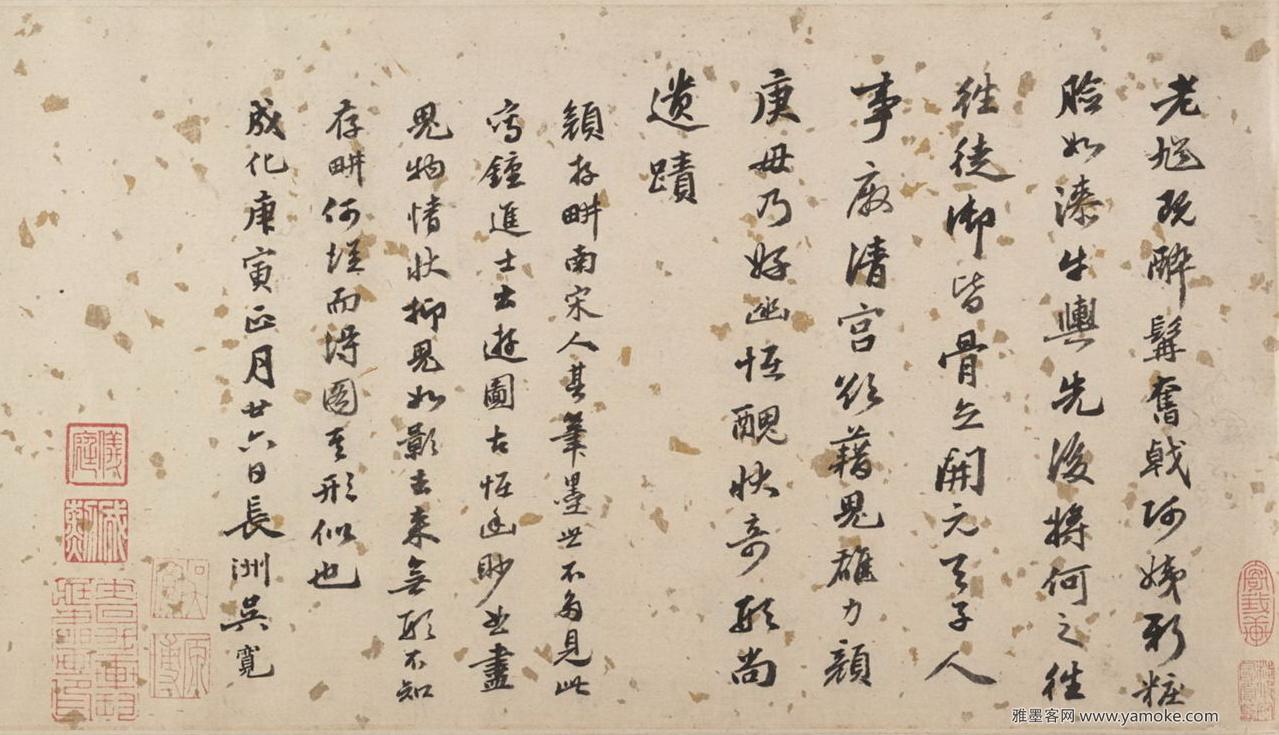 老馗既醉髯奮戟阿姨新粧
臉如漆牛輿先後將何之往
往徒御皆骨立開元天子人
事廢清宮欲藉鬼雄力顏
庚毋乃好幽恠醜狀奇形尚
遺蹟
顏存畊南宋人其筆墨世不多見此
寫鐘進士出遊圖古恠幽眇曲盡
鬼物情狀抑鬼如影去来無形不知
存畊何從而得圖其形似也
成化庚寅正月廿六日長洲吳寬
雅墨客网 www.yamoke.com